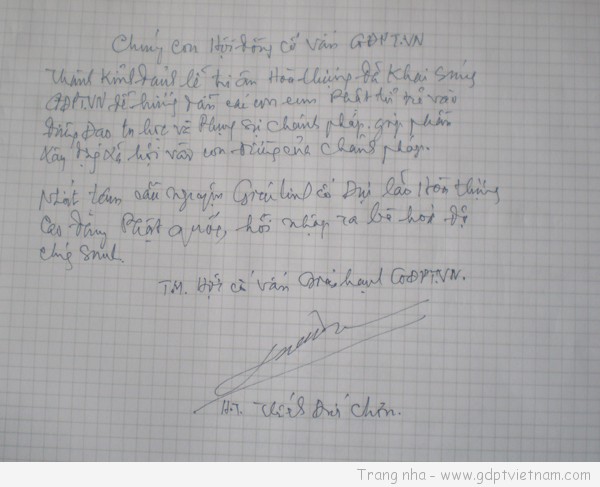 Chúng con Hội đồng cố vấn GĐPT.VN
Thành Kính đảnh lễ tri ân Hòa thượng đã Khai sáng
GĐPT.VN để hướng dẫn các con em Phật tử trẻ vào
đường Đạo tu học và Phụng sự chánh pháp, góp phần
Xây dựng Xã hội vào con đường của chánh pháp.
Nhất tâm cầu nguyện Giác linh cố Đại lão Hòa thượng
Cao đăng Phật quốc, hồi nhập ta bà hoá độ
chúng sanh.
TM. Hội cố vấn Giáo hạnh GĐPT.VN.
H.T. Thích Đức Chơn.
Trang nha - www.gdptvietnam.com